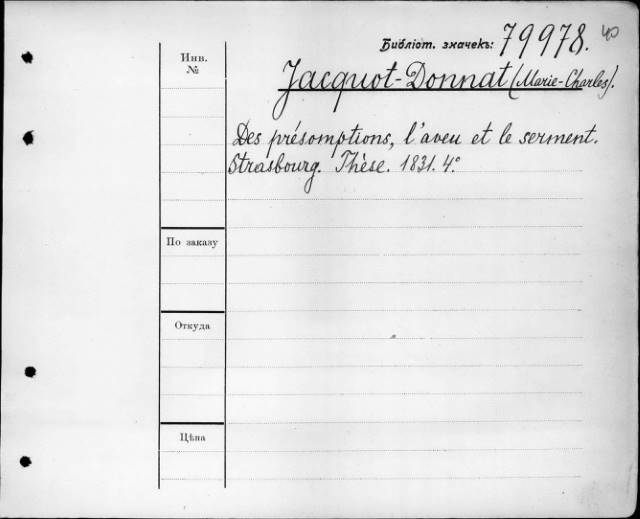 40
Библіот. значекъ: 79978.
Инв.
№
Jacquot-Donnat (Marie-Charles).
Des présomptions, l'aveu et le serment.
Strasbourg. Thèse. 1831. 4°
По заказу
Откуда
Цѣна